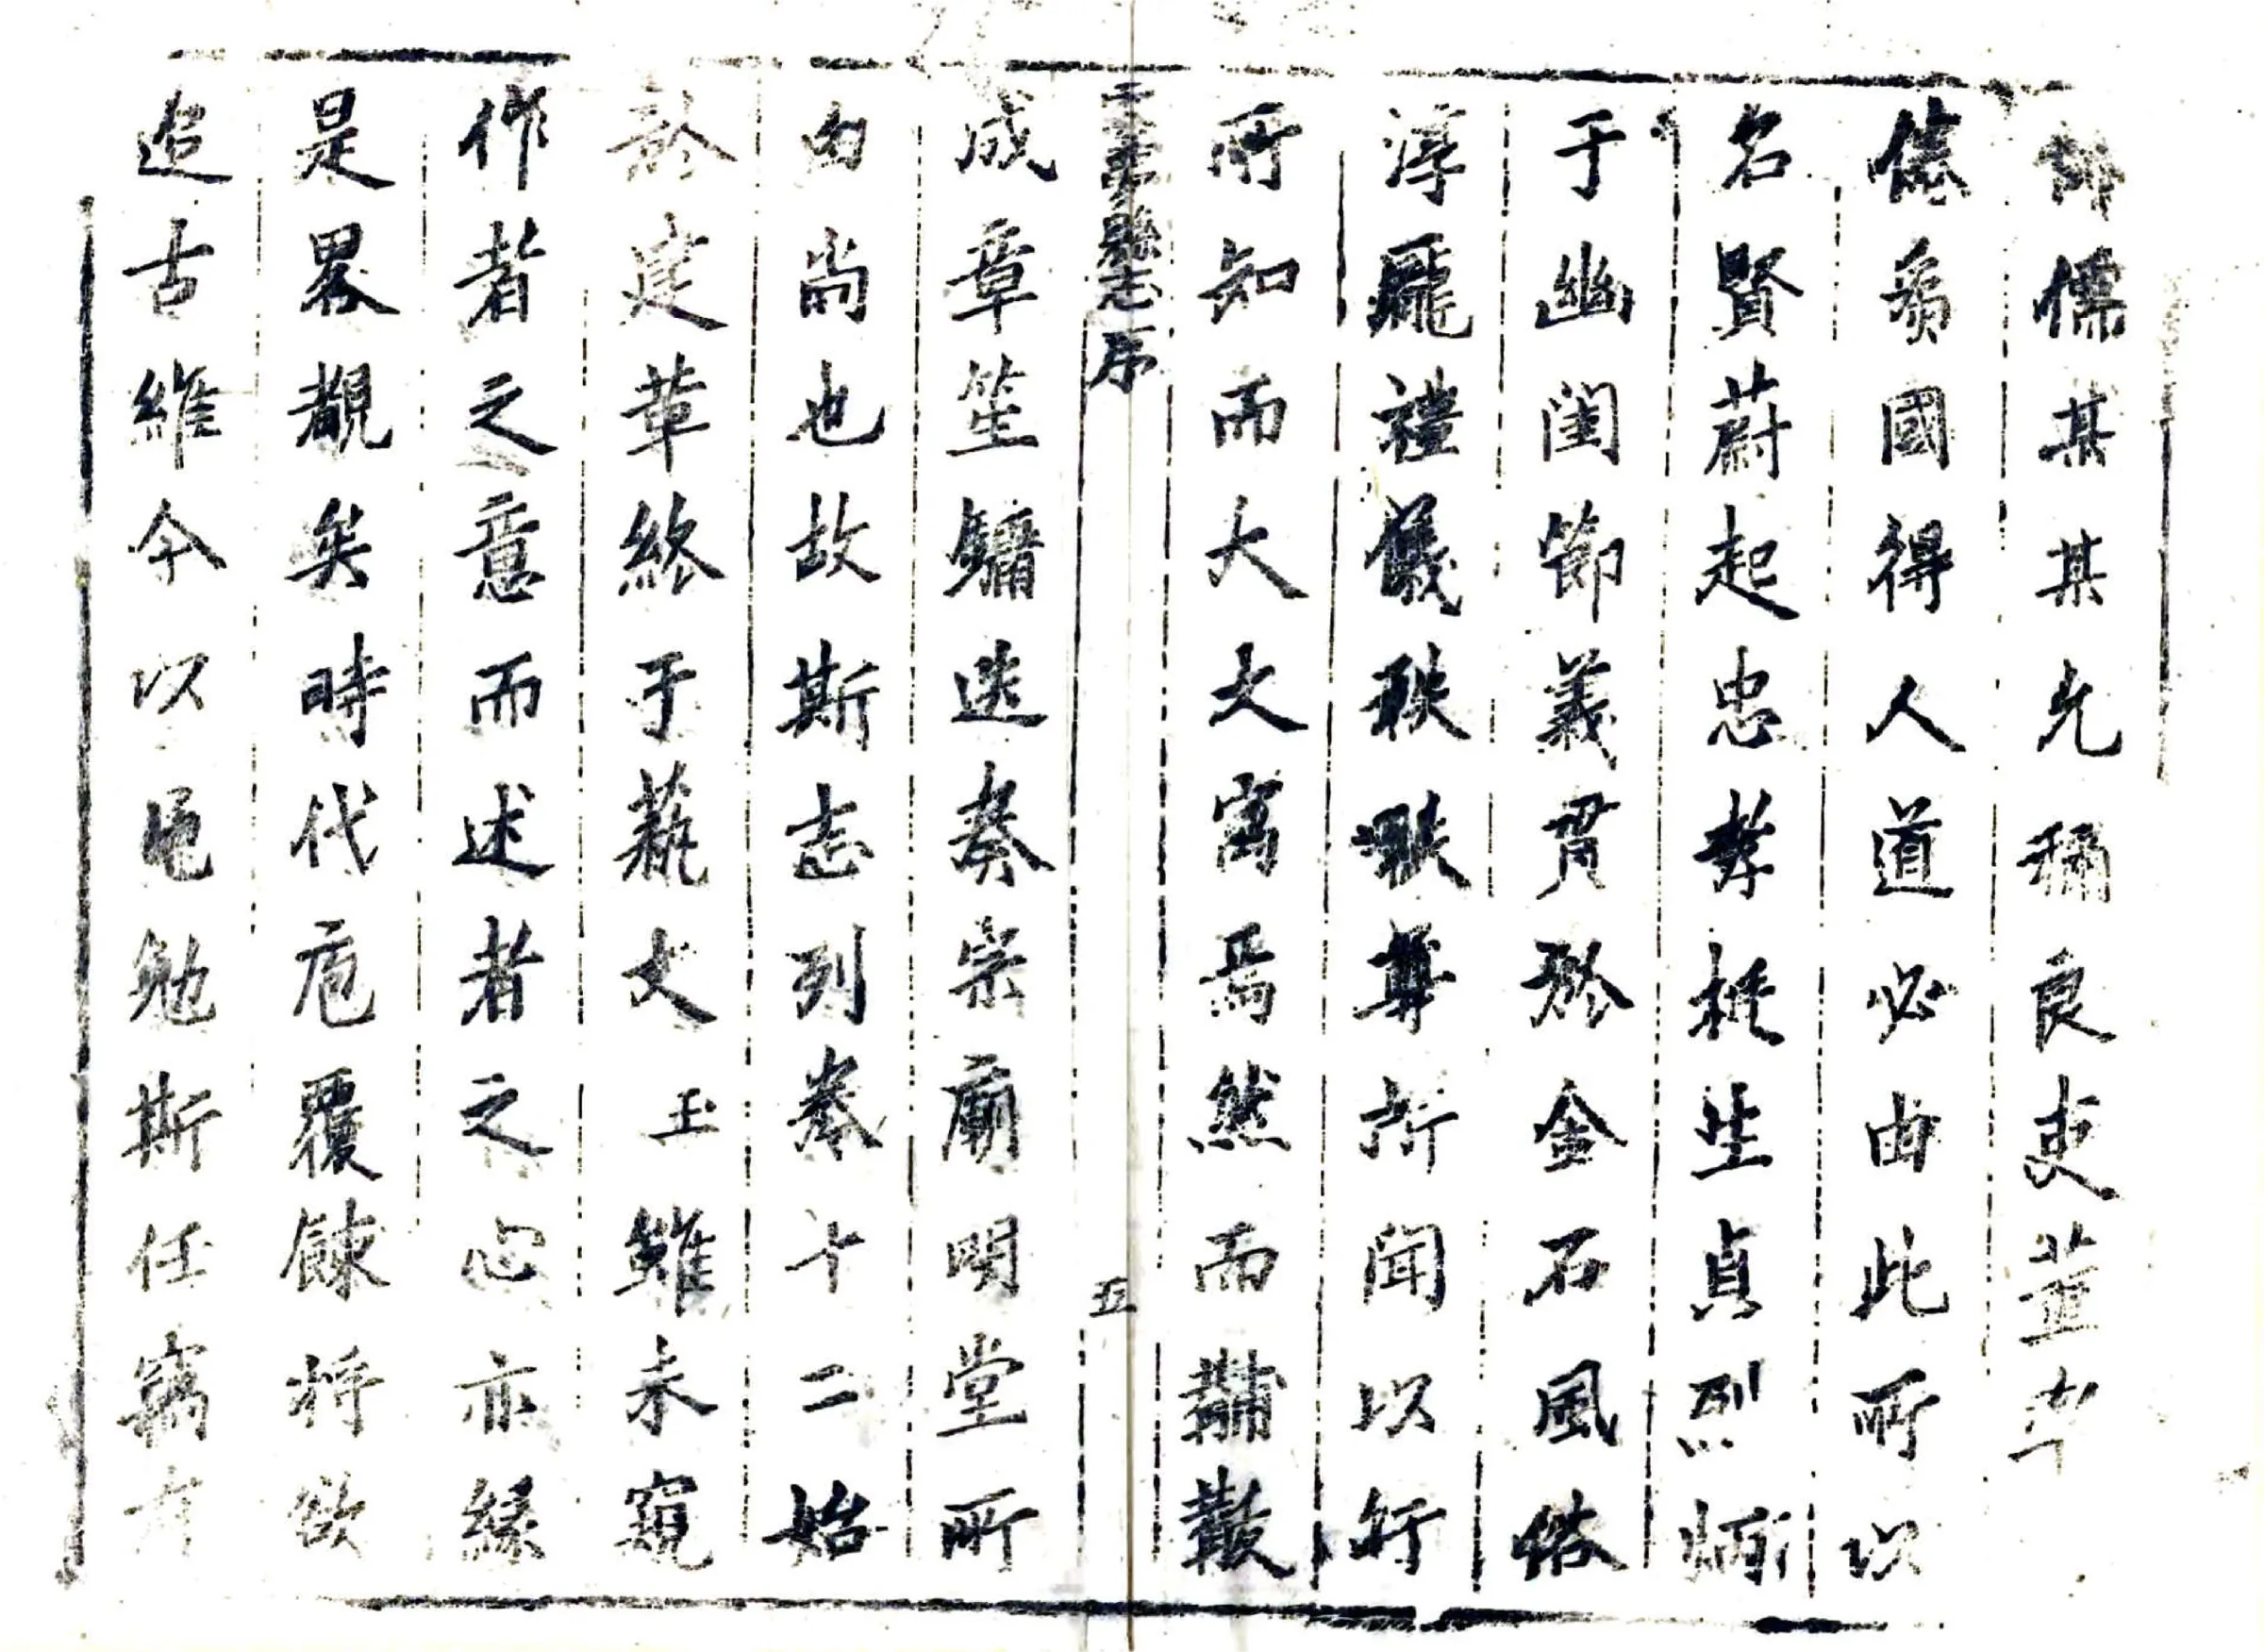 儒某某允稱良吏董率
修爲國得人道必由此所以
名賢蔚起忠孝挺生貞烈炳
于幽閨節義貫於金石風俗
淳龐禮儀秩秩尊所聞以行
所知而大文寓焉然而黼黻
縣志序
五
成章笙鏞迭奏宗廟明堂所
由尚也故斯志列卷十二始
於建革終于藝文 玉雖未窺
作者之意而述者之心亦緣
是畧覩矣時代危覆餗將欲
追古維今以黽勉斯任竊有